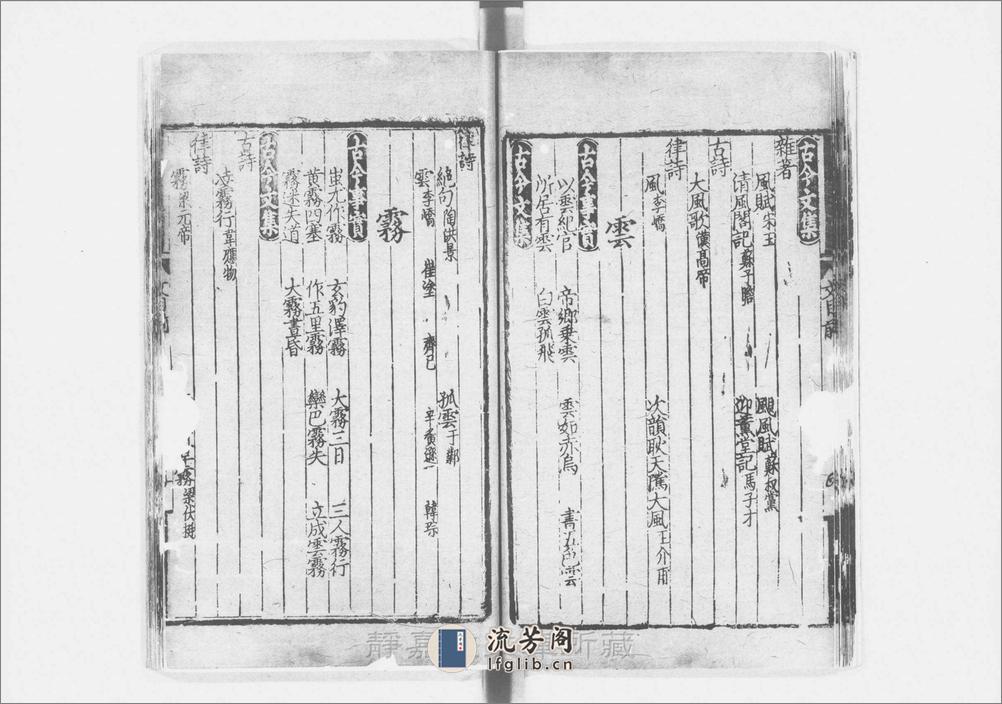 古今文集
雜著
風賦宋玉　颶風賦蘇叔黨
清風閣記蘇子瞻　迎薰堂記馬子才
古詩
大風歌漢高帝
律詩
風李嶠　次韻耿天隲大風王介甫
雲
古今事實
以雲紀官　帝鄉乗雲　雲如赤烏　書五色雲
所居有雲　白雲孤飛
古今文集
律詩
絕句陶洪景　孤雲于鄴
雲李嶠　崔塗　齊己　辛寅遜　韓琮
霧
古今事實
蚩尤作霧　玄豹澤霧　大霧三日　三人霧行
黃霧四塞　作五里霧　欒巴霧失　立成雲霧
霧迷失道　大霧晝昏
古今文集
古詩
凌霧行韋應物
律詩
霧梁元帝　霧梁伏挺
流芳阁
lfglib.cn
靜嘉 所藏